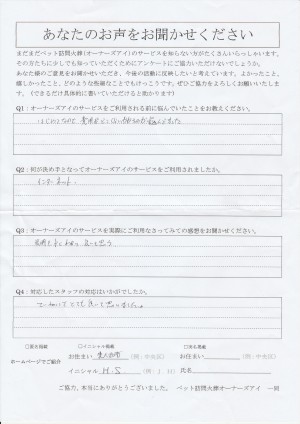 あなたのお声をお聞かせください
まだまだペット訪問火葬(オーナーズアイ)のサービスを知らない方がたくさんいらっしゃいます。
その方たちに少しでも知っていただくためにアンケートにご協力いただけないでしょうか。
あなた様のご意見をお聞かせいただき、今後の活動に反映したいと考えています。よかったこと、
嬉しかったこと、どのような些細なことでもけっこうです。ぜひご協力をよろしくお願いいたしま
す。(できるだけ具体的に書いていただけると助かります)
Q1:オーナーズアイのサービスをご利用される前に悩んでいたことをお教えください。
はじめてなので
Q2:何が決め手となってオーナーズアイのサービスをご利用されましたか。
インターネット
Q3:オーナーズアイのサービスを実際にご利用なさってみての感想をお聞かせください。
良いと思う
Q4:対応したスタッフの対応はいかがでしたか。
ていねいでとても良いと思いました。
□匿名掲載 □イニシャル掲載 □実名掲載
ホームページでご紹介
お住まい (例:中央区) お住まい (例:中央区)
イニシャル H.S. (例:J.H) 氏名
ご協力、本当にありがとうございました。 ペット訪問火葬オーナーズアイ 一同